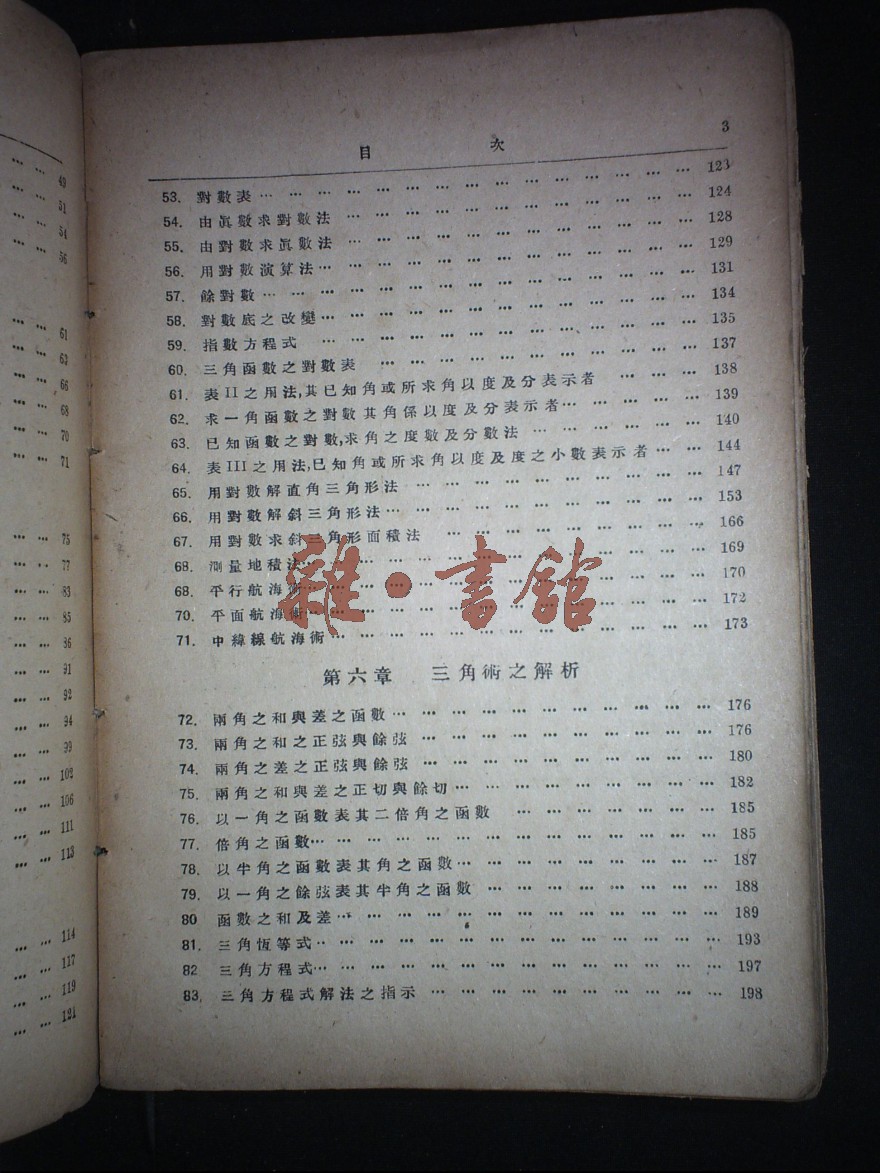 49
51
54
56
61
63
66
68
70
71
75
77
83
85
86
91
92
94
99
102
106
111
113
114
117
119
121
目 次 3
53. 對數表 … 123
54. 由眞數求對數法 … 124
55. 由對數求眞數法 … 128
56. 用對數演算法 … 129
57. 餘對數 … 131
58. 對數底之改變 … 134
59. 指數方程式 … 135
60. 三角函數之對數表 … 137
61. 表II之用法,其已知角或所求角以度及分表示者 … 138
62. 求一角函數之對數其角係以度及分表示者 … 139
63. 已知函數之對數,求角之度數及分數法 … 140
64. 表III之用法,已知角或所求角以度及度之小數表示者 … 144
65. 用對數解直角三角形法 … 147
66. 用對數解斜三角形法 … 153
67. 用對數求斜三角形面積法 … 166
68. 測量地積法 … 169
68. 平行航海術 … 170
70. 平面航海術 … 172
71. 中緯線航海術 … 173
雜·書館
第六章 三角術之解析
72. 兩角之和與差之函數 … 176
73. 兩角之和之正弦與餘弦 … 176
74. 兩角之差之正弦與餘弦 … 180
75. 兩角之和與差之正切與餘切 … 182
76. 以一角之函數表其二倍角之函數 … 185
77. 倍角之函數 … 185
78. 以半角之函數表其角之函數 … 187
79. 以一角之餘弦表其半角之函數 … 188
80 函數之和及差 … 189
81. 三角恆等式 … 193
82 三角方程式 … 197
83, 三角方程式解法之指示 … 198